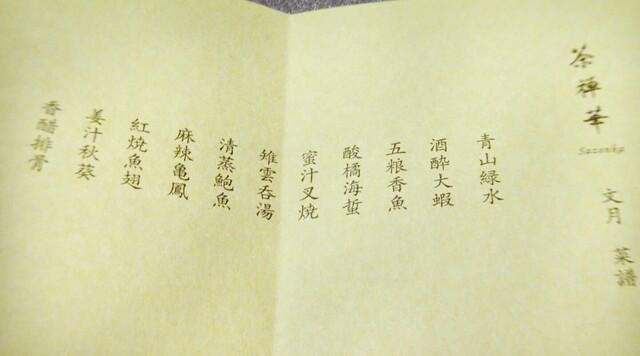 茶禅華
Sazenka
文月 菜譜
青山緑水
酒酔大蝦
五粮香魚
酸橘海蜇
蜜汁叉焼
雉雲呑湯
清蒸鮑魚
麻辣亀鳳
紅焼魚翅
姜汁秋葵
香醋排骨